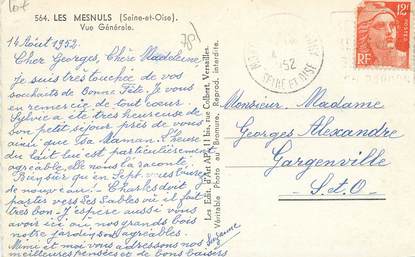 564. LES MESNULS (Seine-et-Oise)
Vue Générale.
14 Août 1952.
Cher Georges, Chère Madeleine,
Je suis très touchée de vos
souhaits de Bonne Fête. Je vous
en remercie de tout cœur.
Sylvie a été très heureuse de
son petit séjour près de vous
ainsi que Da Maman. L'heure
du lait lui est particulièrement
agréable, elle nous l'a raconté.
en Sept. vous
de nouveau! Charles doit
partir vers Les Sables où il fait
très bon. J'espère aussi vous
avoir ici où nos grands bois
notre jardin sont agréables.
Mimi et moi vous adressons nos
meilleures pensées et de bons baisers
Suzanne
Les Edit. d'Art APA 11 bis, rue Colbert, Versailles.
Véritable Photo au Bromure. Reprod. interdite.
SEINE ET OISE
1952
12F
RF
Monsieur. Madame
Georges Alexandre
Gargenville
S. et O.